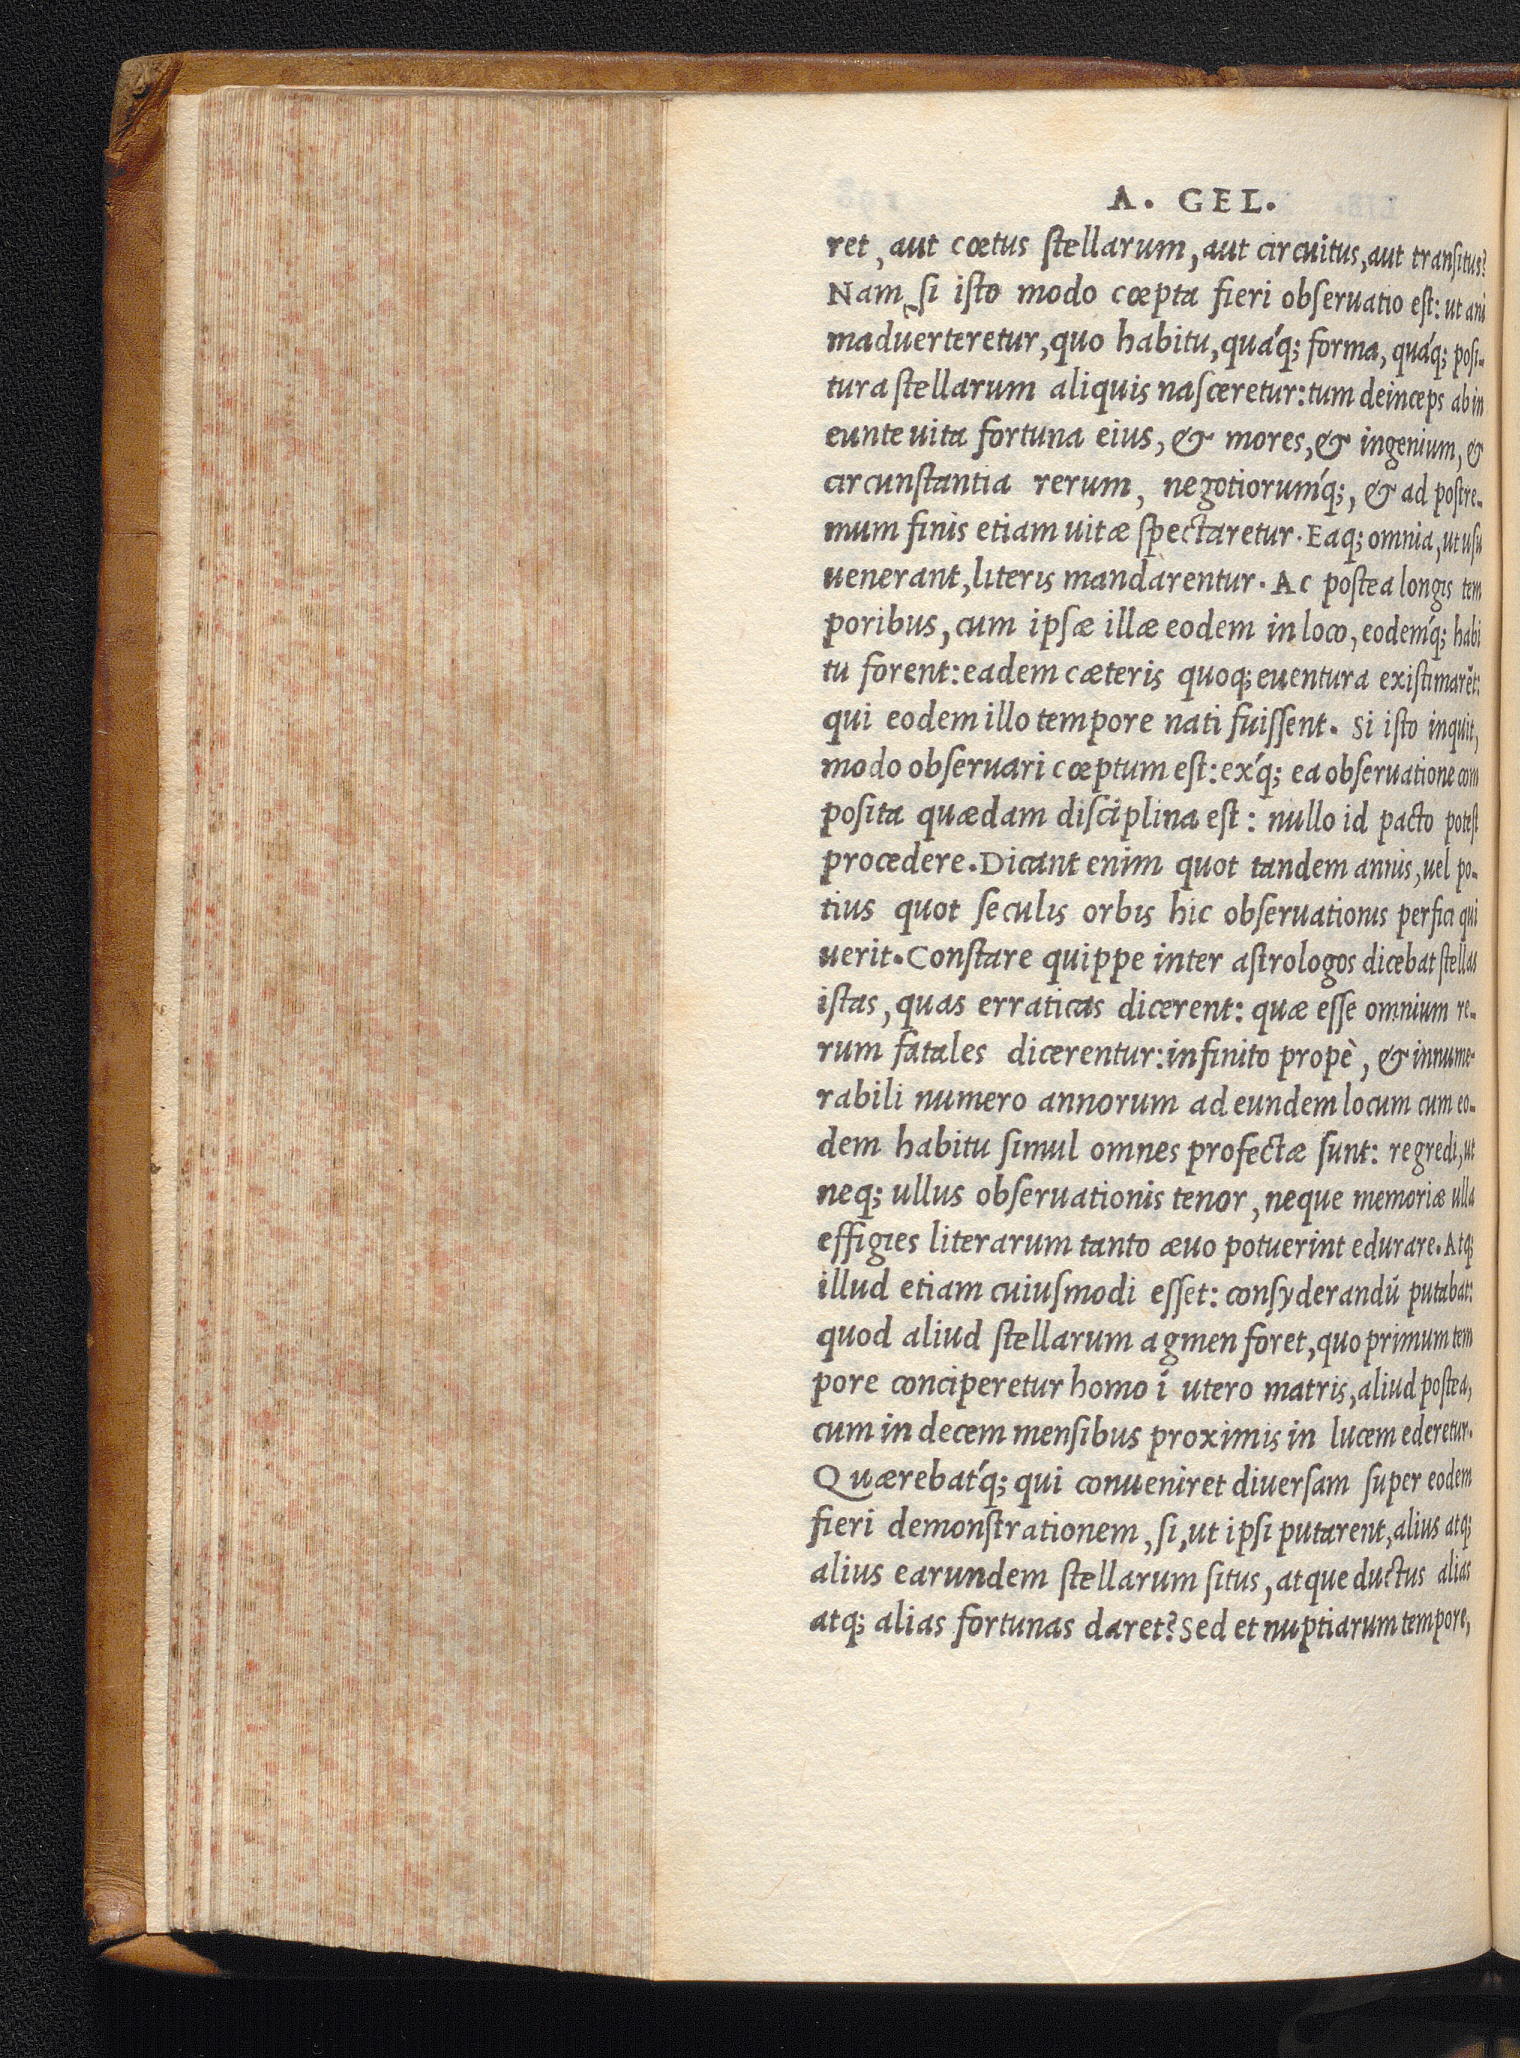 A. GEL.
ret, aut cœtus ſtellarum, aut circuitus, aut tranſitus?
Nam ſi iſto modo cœpta fieri obſeruatio eſt: ut ani
maduerteretur, quo habitu, quáq; forma, quáq; poſi-
tura ſtellarum aliquis naſceretur: tum deinceps ab in
eunte uita fortuna eius, & mores, & ingenium, &
circunſtantia rerum, negotiorumq́;, & ad poſtre-
mum finis etiam uitæ ſpectaretur. Eaq; omnia, ut uſu
uenerant, literis mandarentur. Ac poſtea longis tem
poribus, cum ipſæ illæ eodem in loco, eodemq́; habi
tu forent: eadem cæteris quoq; euentura exiſtimarẽt:
qui eodem illo tempore nati fuiſſent. Si iſto inquit,
modo obſeruari cœptum eſt: exq́; ea obſeruatione com
poſita quædam diſciplina eſt: nullo id pacto poteſt
procedere. Dicant enim quot tandem annis, uel po-
tius quot ſeculis orbis hic obſeruationis perfici qui
uerit. Conſtare quippe inter aſtrologos dicebat ſtellas
iſtas, quas erraticas dicerent: quæ eſſe omnium re-
rum fatales dicerentur: infinito propè, & innume-
rabili numero annorum ad eundem locum cum eo-
dem habitu ſimul omnes profectæ ſunt: regredi, ut
neq; ullus obſeruationis tenor, neque memoriæ ulla
effigies literarum tanto æuo potuerint edurare. Atq;
illud etiam cuiuſmodi eſſet: conſyderandū putabat:
quod aliud ſtellarum agmen foret, quo primum tem
pore conciperetur homo ī utero matris, aliud poſtea,
cum in decem menſibus proximis in lucem ederetur.
Quærebatq́; qui conueniret diuerſam ſuper eodem
fieri demonſtrationem, ſi, ut ipſi putarent, alius atq;
alius earundem ſtellarum ſitus, atque ductus alias
atq; alias fortunas daret? Sed et nuptiarum tempore,